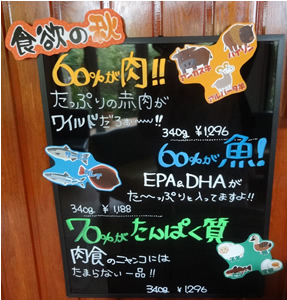 食欲の秋
60%が肉!!
たっぷりの赤肉が
ワイルドだろぉ〜〜!!
340g ¥1,296
60%が魚!
EPA&DHAが
た〜〜っぷりと入ってますよ!!
340g ¥1,188
70%がたんぱく質
肉食のニャンコには
たまらない一品!!
340g ¥1,296